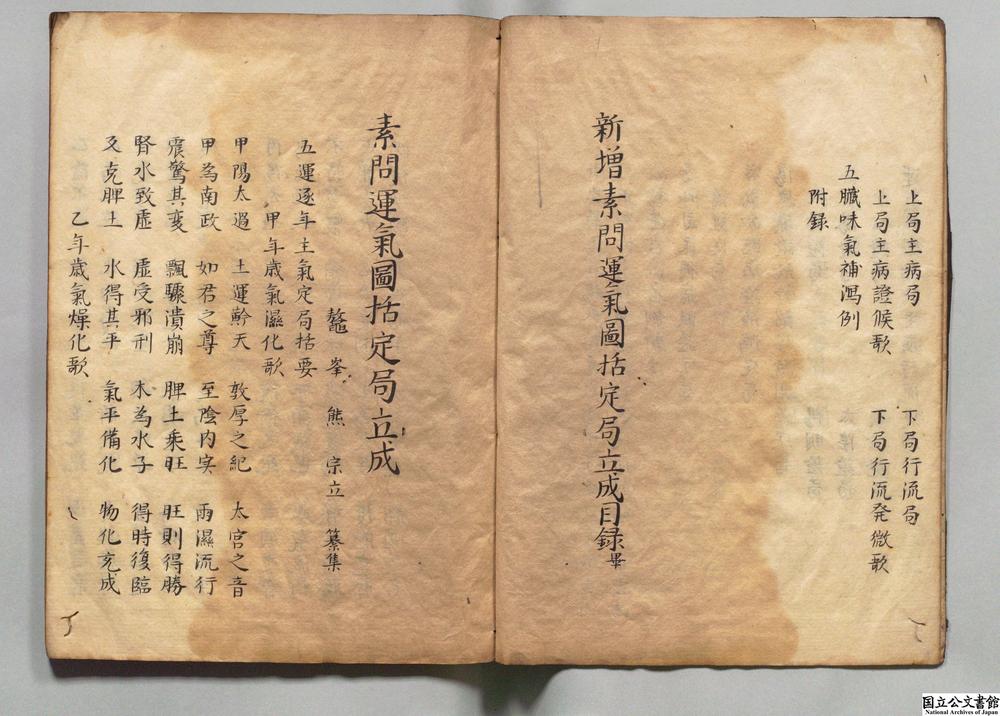 上局主病局　下局行流局
上局主病證候歌　下局行流発微歌
五臟味氣補瀉例
附録
新增素問運氣圖括定局立成目録畢
素問運氣圖括定局立成
鼇峯　熊　宗立　纂集
五運逐年主氣定局括要
甲年歳氣濕化歌
甲陽太過　土運斡天　敦厚之紀　太宮之音
甲為南政　如君之尊　至陰内实　雨濕流行
震驚其変　飄驟潰崩　脾土乘旺　旺則得勝
腎水致虚　虚受邪刑　木為水子　得時復臨
又克脾土　水得其平　氣平備化　物化充成
乙年歳氣燥化歌
国立公文書館
National Archives of Japan